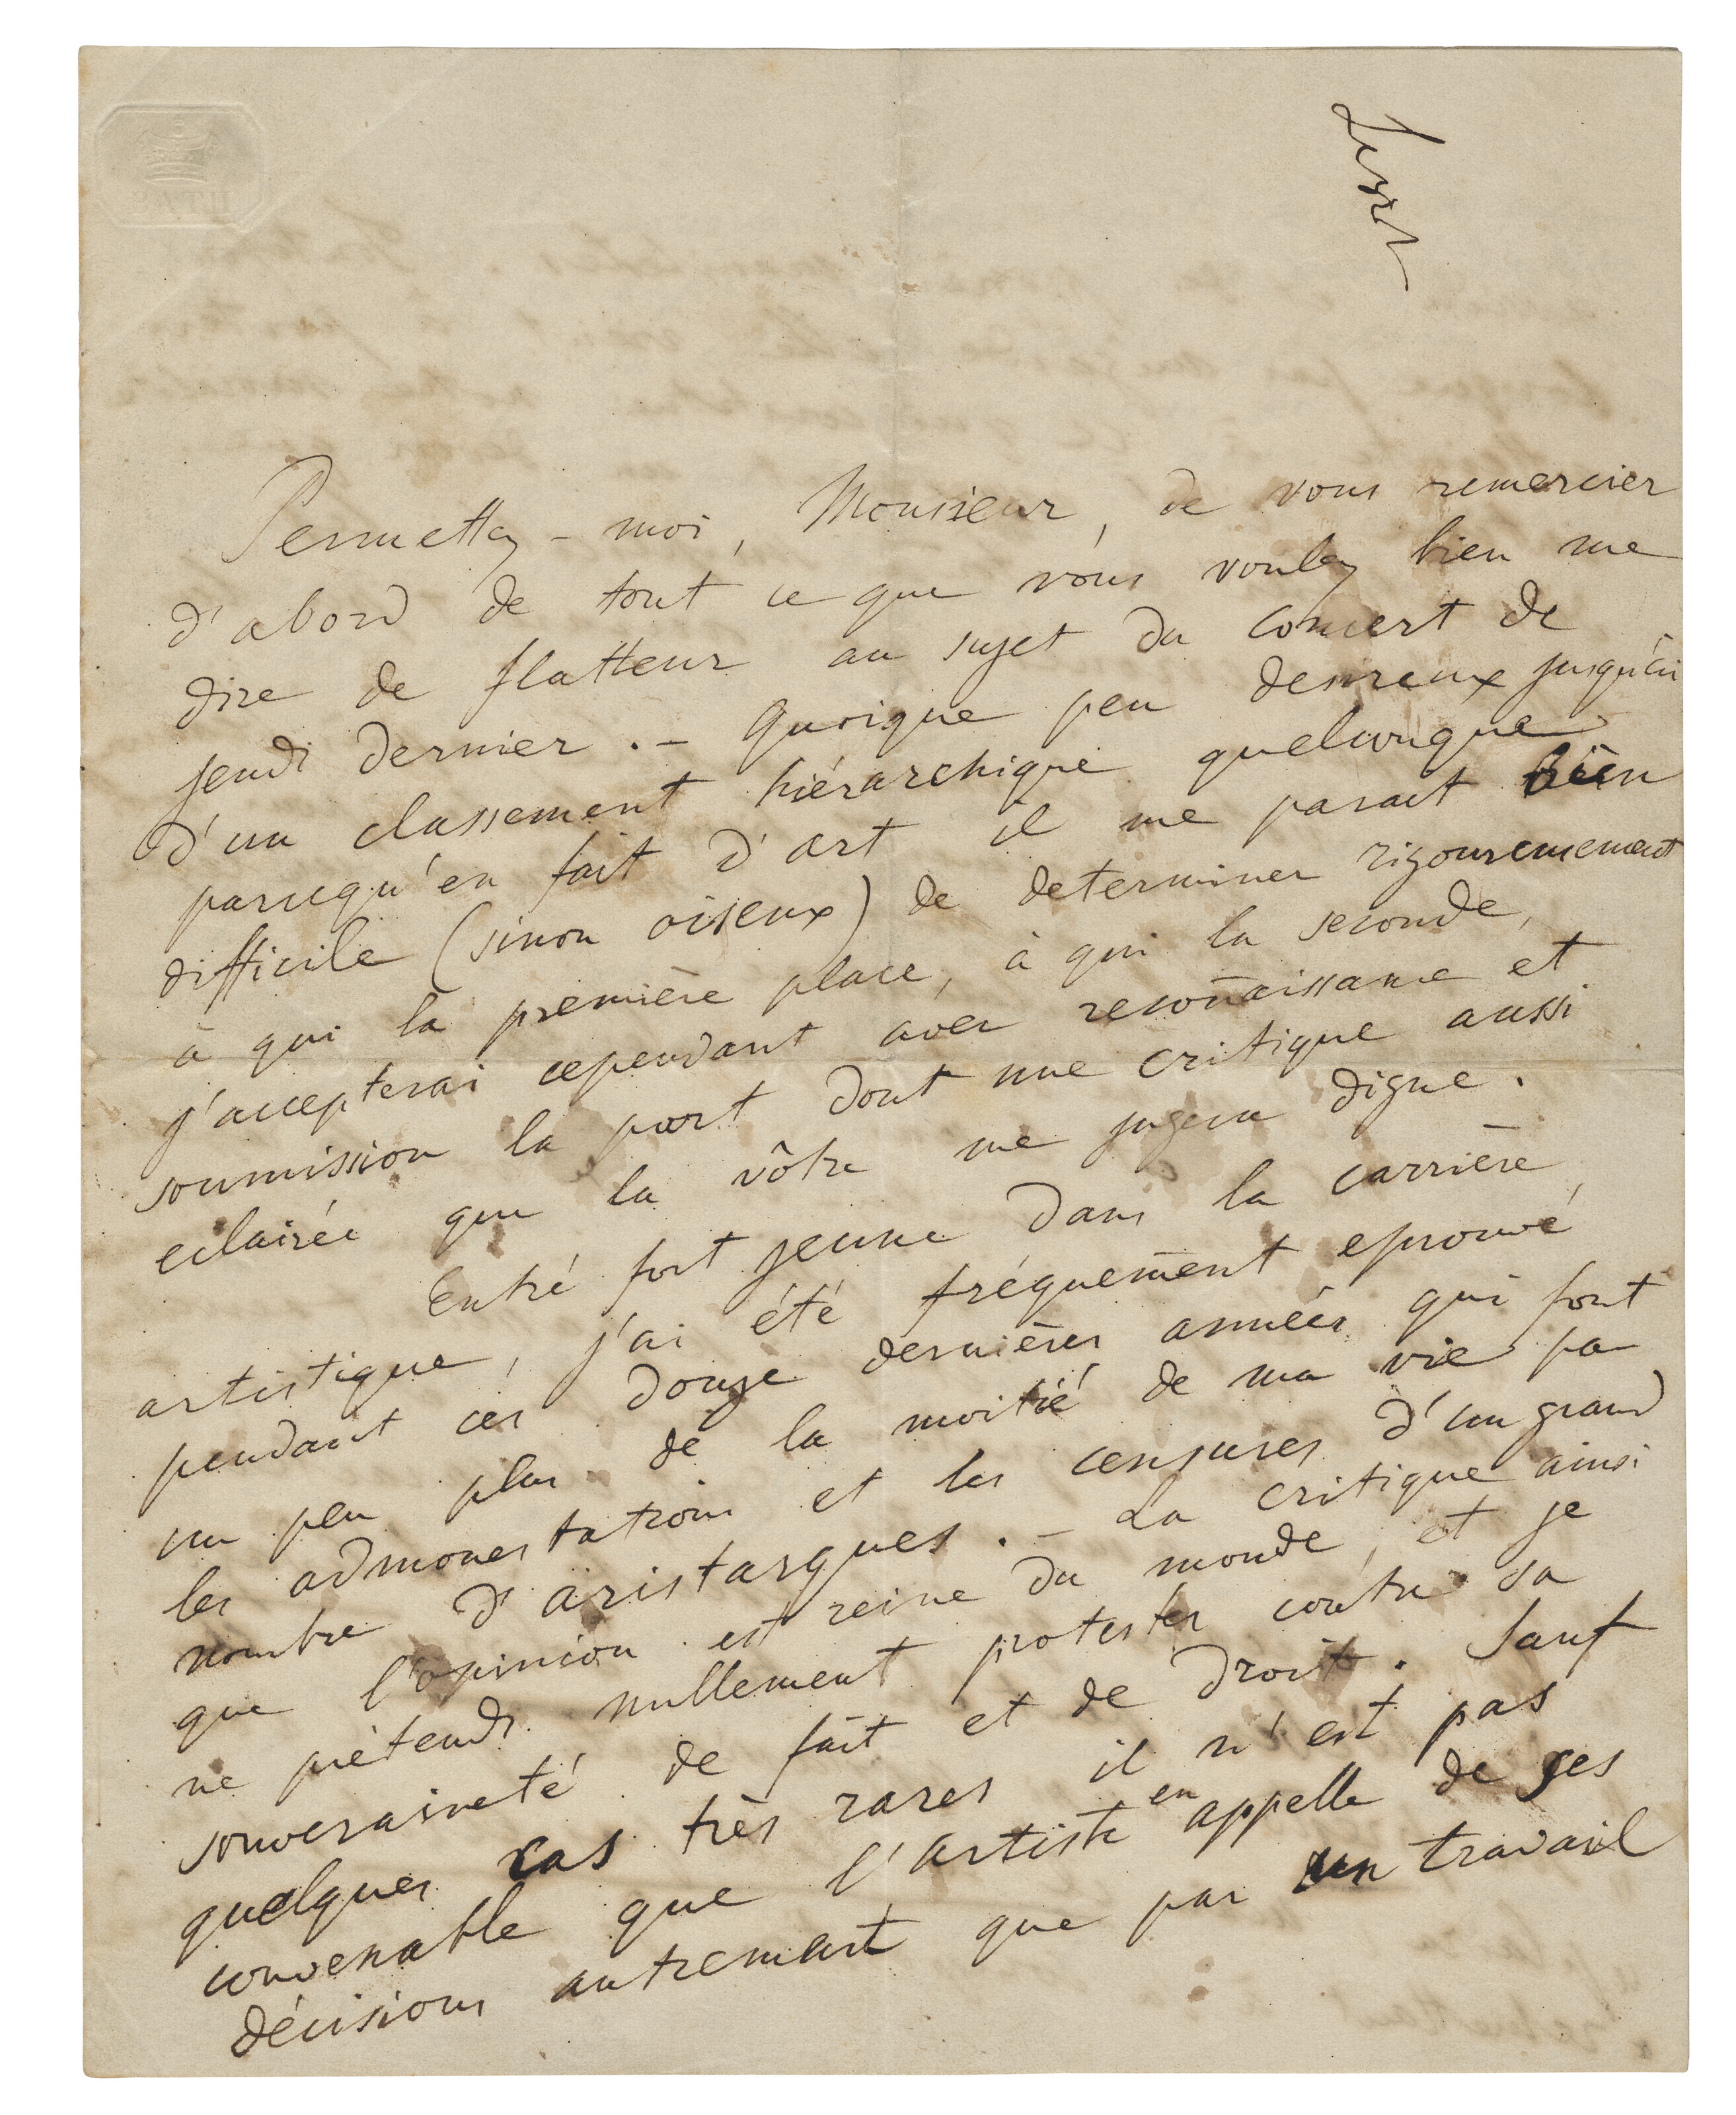 Liszt
BATH
Permettez-moi, Monsieur, de vous remercier
d'abord de tout ce que vous voulez bien me
dire de flatteur au sujet du concert de
jeudi dernier. – Quoique peu desireux jusqu'ici
d'un classement hiérarchique quelconque
parcequ'en fait d'art il me parait bien
difficile (sinon oiseux) de determiner rigoureusement
à qui la première place, à qui la seconde,
j'accepterai cependant avec reconnaissance et
soumission la part dont une critique aussi
eclairée que la vôtre me jugera digne.
Entré fort jeune dans la carrière
artistique, j'ai été fréquemment eprouvé,
pendant ces douze dernières années qui font
un peu plus de la moitié de ma vie par
les admonestations et les censures d'un grand
nombre d'aristarques. – La critique ainsi
que l'opinion est reine du monde, et je
ne prétends nullement protester contre sa
souveraineté de fait et de droit. Sauf
quelques cas très rares il n'est pas
convenable que l'artiste en appelle de ses
décisions autrement que par un travail